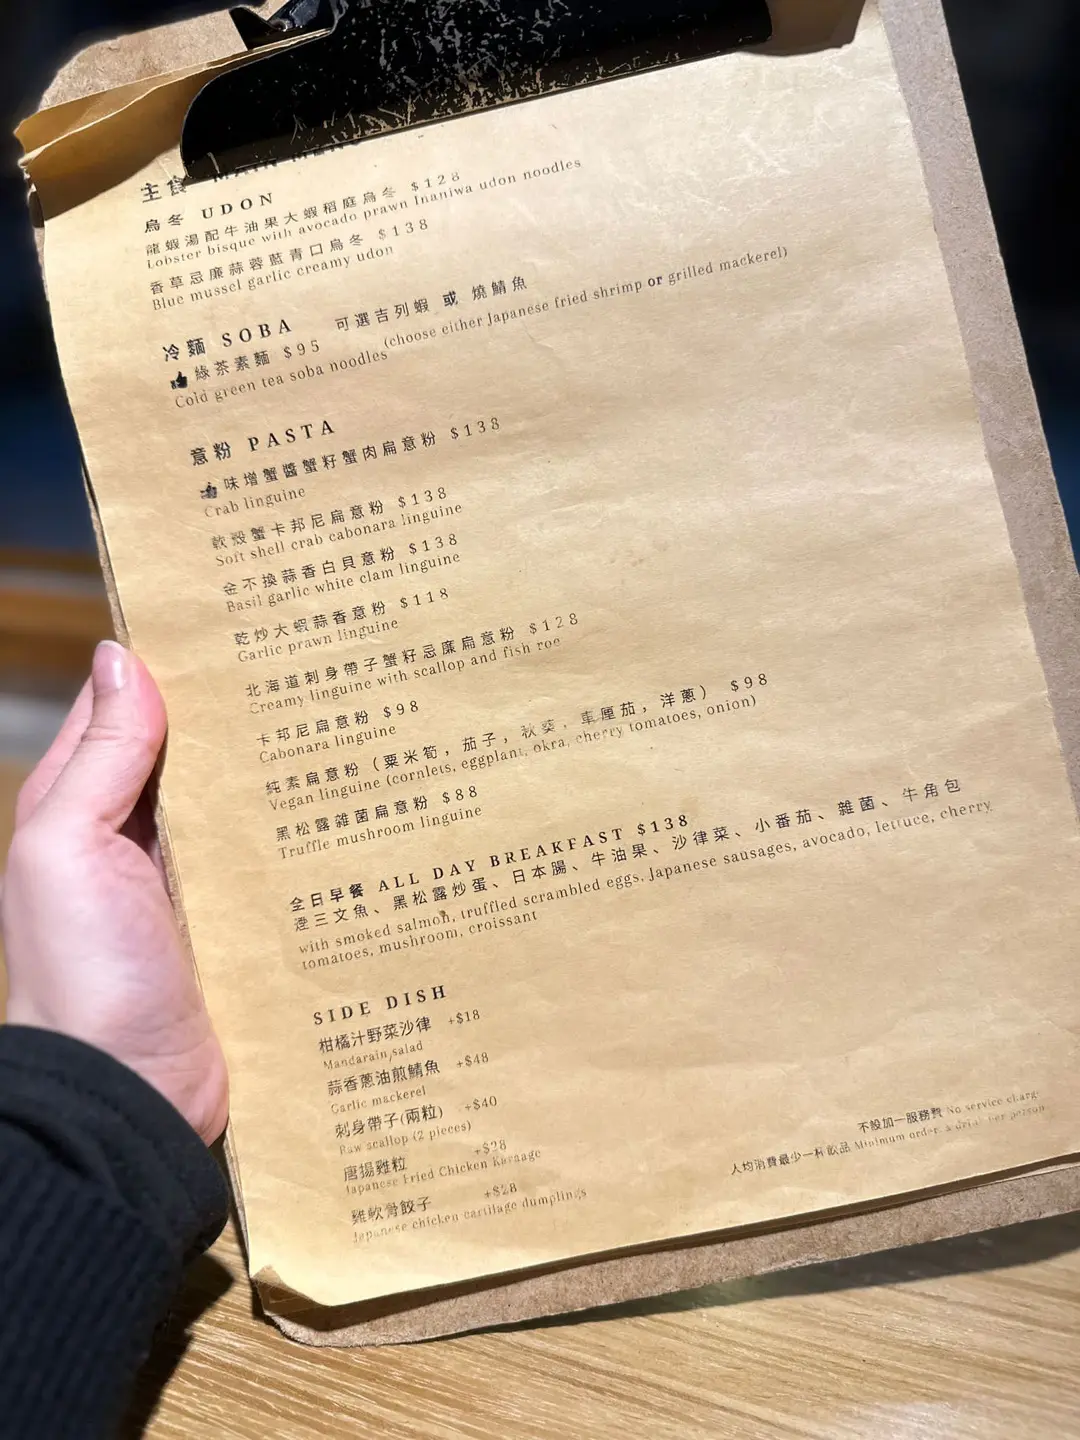 主食 MAIN MENU
烏冬 UDON
龍蝦湯配牛油果大蝦稻庭烏冬 $128
Lobster bisque with avocado prawn Inaniwa udon noodles
香草忌廉蒜蓉藍青口烏冬 $138
Blue mussel garlic creamy udon
冷麵 SOBA 可選吉列蝦 或 燒鯖魚
(choose either Japanese fried shrimp or grilled mackerel)
綠茶素麵 $95
Cold green tea soba noodles
意粉 PASTA
味增蟹醬蟹籽蟹肉扁意粉 $138
Crab linguine
軟殼蟹卡邦尼扁意粉 $138
Soft shell crab cabonara linguine
金不換蒜香白貝意粉 $138
Basil garlic white clam linguine
乾炒大蝦蒜香意粉 $118
Garlic prawn linguine
北海道刺身帶子蟹籽忌廉扁意粉 $128
Creamy linguine with scallop and fish roe
卡邦尼扁意粉 $98
Cabonara linguine
純素扁意粉（粟米筍，茄子，秋葵，車厘茄，洋蔥） $98
Vegan linguine (cornlets, eggplant, okra, cherry tomatoes, onion)
黑松露雜菌扁意粉 $88
Truffle mushroom linguine
全日早餐 ALL DAY BREAKFAST $138
煙三文魚、黑松露炒蛋、日本腸、牛油果、沙律菜、小番茄、雜菌、牛角包
with smoked salmon, truffled scrambled eggs, Japanese sausages, avocado, lettuce, cherry
tomatoes, mushroom, croissant
SIDE DISH
柑橘汁野菜沙律 +$18
Mandarain salad
蒜香蔥油煎鯖魚 +$48
Garlic mackerel
刺身帶子(兩粒) +$40
Raw scallop (2 pieces)
唐揚雞粒 +$28
Japanese Fried Chicken Karaage
雞軟骨餃子 +$28
Japanese chicken cartilage dumplings
不設加一服務費 No service charge
人均消費最少一杯飲品 Minimum order a drink per person